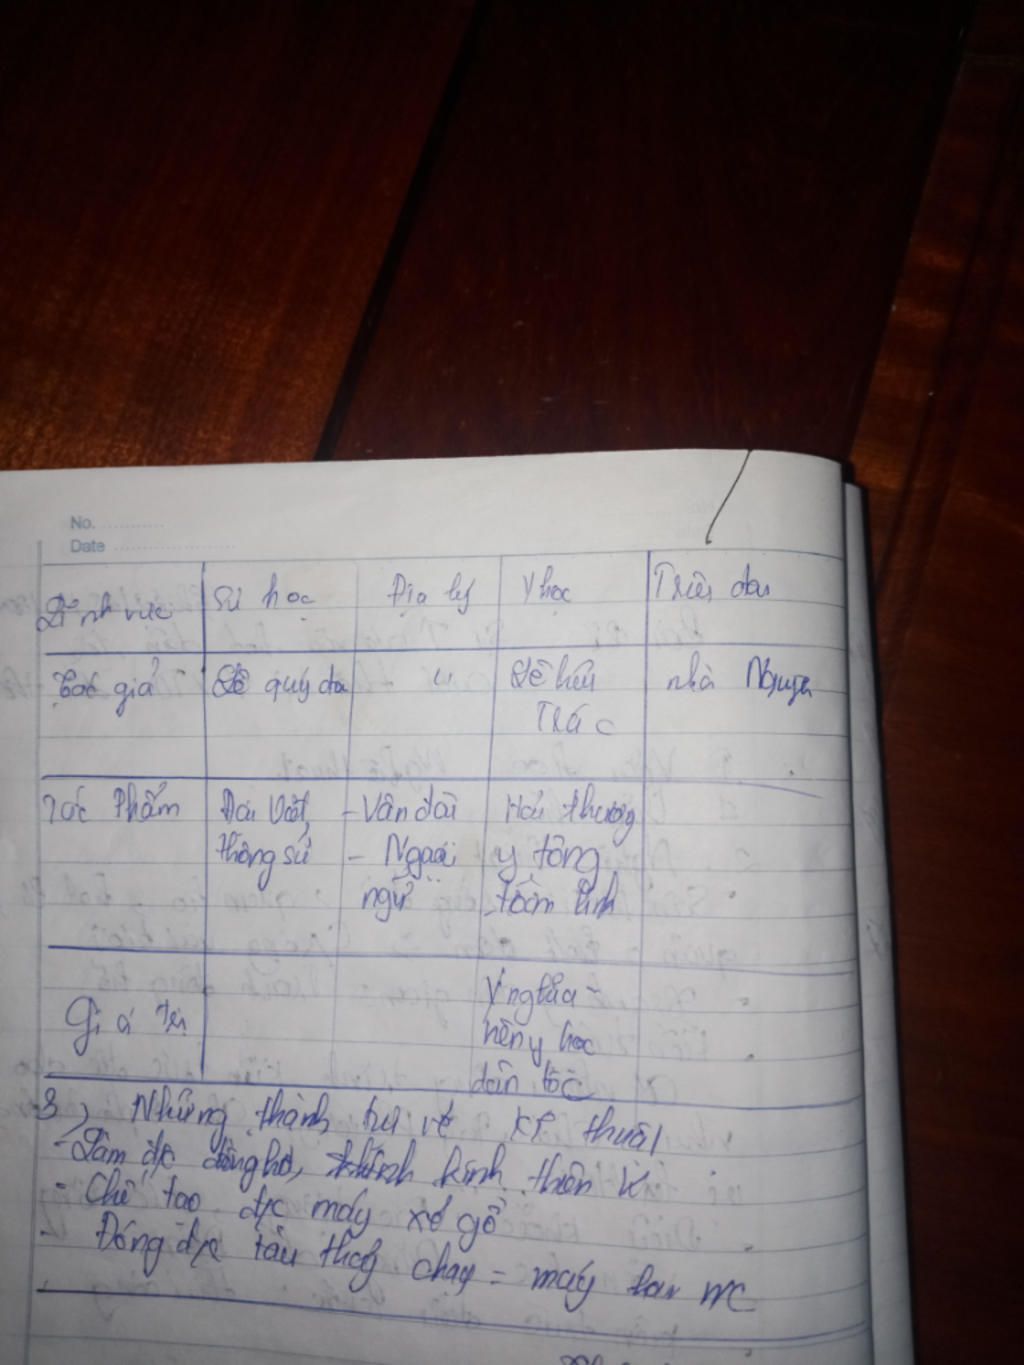 No.
Date
Lĩnh vực Sử học Địa lý Y học Triều đại
Tác giả Lê quý đô " Lê hữu nhà Nguyễn
Trác
Tác Phẩm Đại Việt - Vân đài Hải thượng
thông sử - Ngoại y tông
ngữ tâm lĩnh
Giá trị Ý nghĩa -
nền y học
dân tộc
3, Những thành tựu về KT thuật
- Làm đc đồng hồ, kính thiên
- Chế tạo đc máy xẻ gỗ
- Đóng đc tàu thủy chạy = máy hơi nc